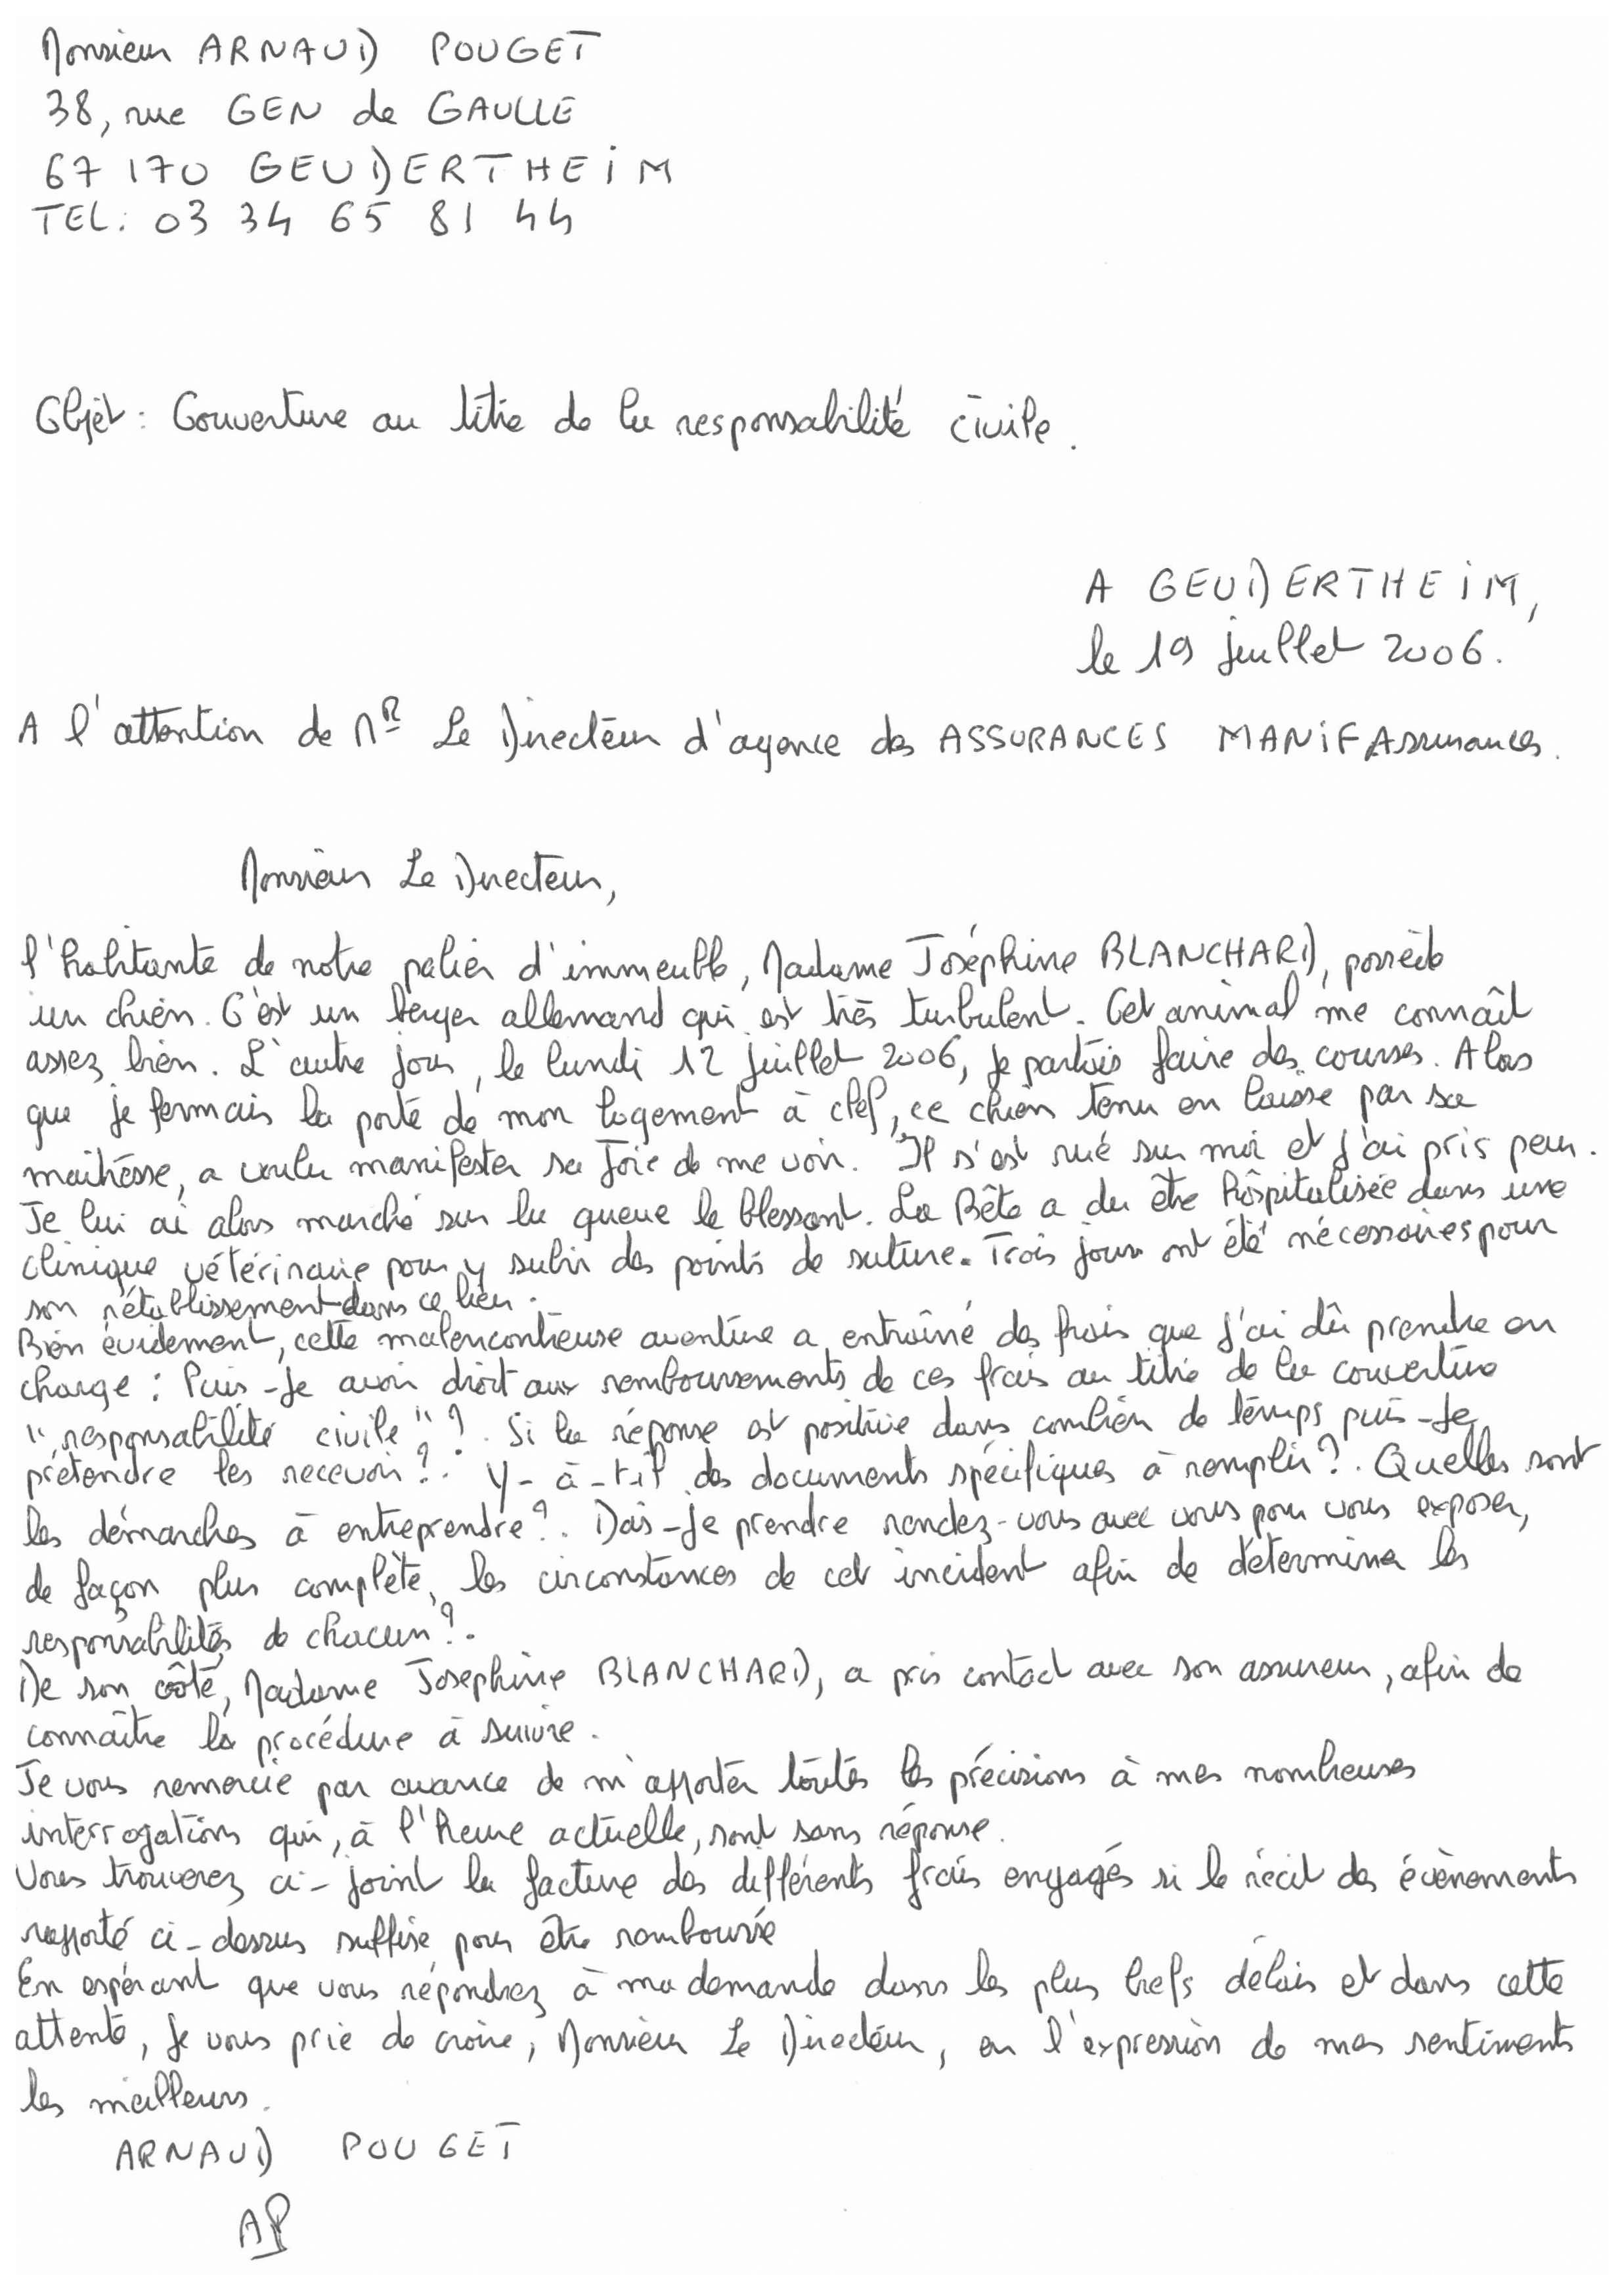 Monsieur ARNAUD POUGET
38, rue GEN de GAULLE
67 170 GEUDERTHEIM
TEL: 03 34 65 81 44
Objet : Couverture au titre de la responsabilité civile.
A GEUDERTHEIM,
le 19 juillet 2006.
A l'attention de MR Le Directeur d'agence des ASSURANCES MANIF Assurances.
Monsieur Le Directeur,
l'habitante de notre palier d'immeuble, Madame Joséphine BLANCHARD, possède
un chien. C'est un berger allemand qui est très turbulent. Cet animal me connaît
assez bien. L'autre jour, le lundi 12 juillet 2006, je partais faire des courses. Alors
que je fermais la porte de mon logement à clef, ce chien tenu en laisse par sa
maîtresse, a voulu manifester sa joie de me voir. Il s'est rué sur moi et j'ai pris peur.
Je lui ai alors marché sur la queue le blessant. La Bête a du être hôspitalisée dans une
clinique vétérinaire pour y subir des points de suture. Trois jours ont été nécessaires pour
son rétablissement dans ce lieu.
Bien évidement, cette malencontreuse aventure a entraîné des frais que j'ai dû prendre en
charge : Puis-je avoir droit aux remboursements de ces frais au titre de la couverture
"responsabilité civile" ?. Si la réponse est positive dans combien de temps puis-je
prétendre les recevoir ?. Y-à-t-il des documents spécifiques à remplir ?. Quelles sont
les démarches à entreprendre ?. Dois-je prendre rendez-vous avec vous pour vous exposer,
de façon plus complète, les circonstances de cet incident afin de déterminer les
responsabilités de chacun ?.
De son côté, Madame Josephine BLANCHARD, a pris contact avec son assureur, afin de
connaître la procédure à suivre.
Je vous remercie par avance de m'apporter toutes les précisions à mes nombreuses
interrogations qui, à l'heure actuelle, sont sans réponse.
Vous trouverez ci-joint la facture des différents frais engagés si le récit des évènements
rapporté ci-dessus suffise pour être remboursée
En espérant que vous répondrez à ma demande dans les plus brefs délais et dans cette
attente, je vous prie de croire, Monsieur Le Directeur, en l'expression de mes sentiments
les meilleurs.
ARNAUD POUGET
AP